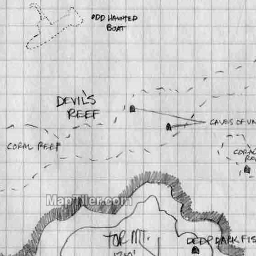 ODD HAUNTED
BOAT
DEVIL'S
REEF
CAVES OF UN
CORAL REEF
CORAL
MapTiler.com
TOR MT.
DEEP DARK FIS